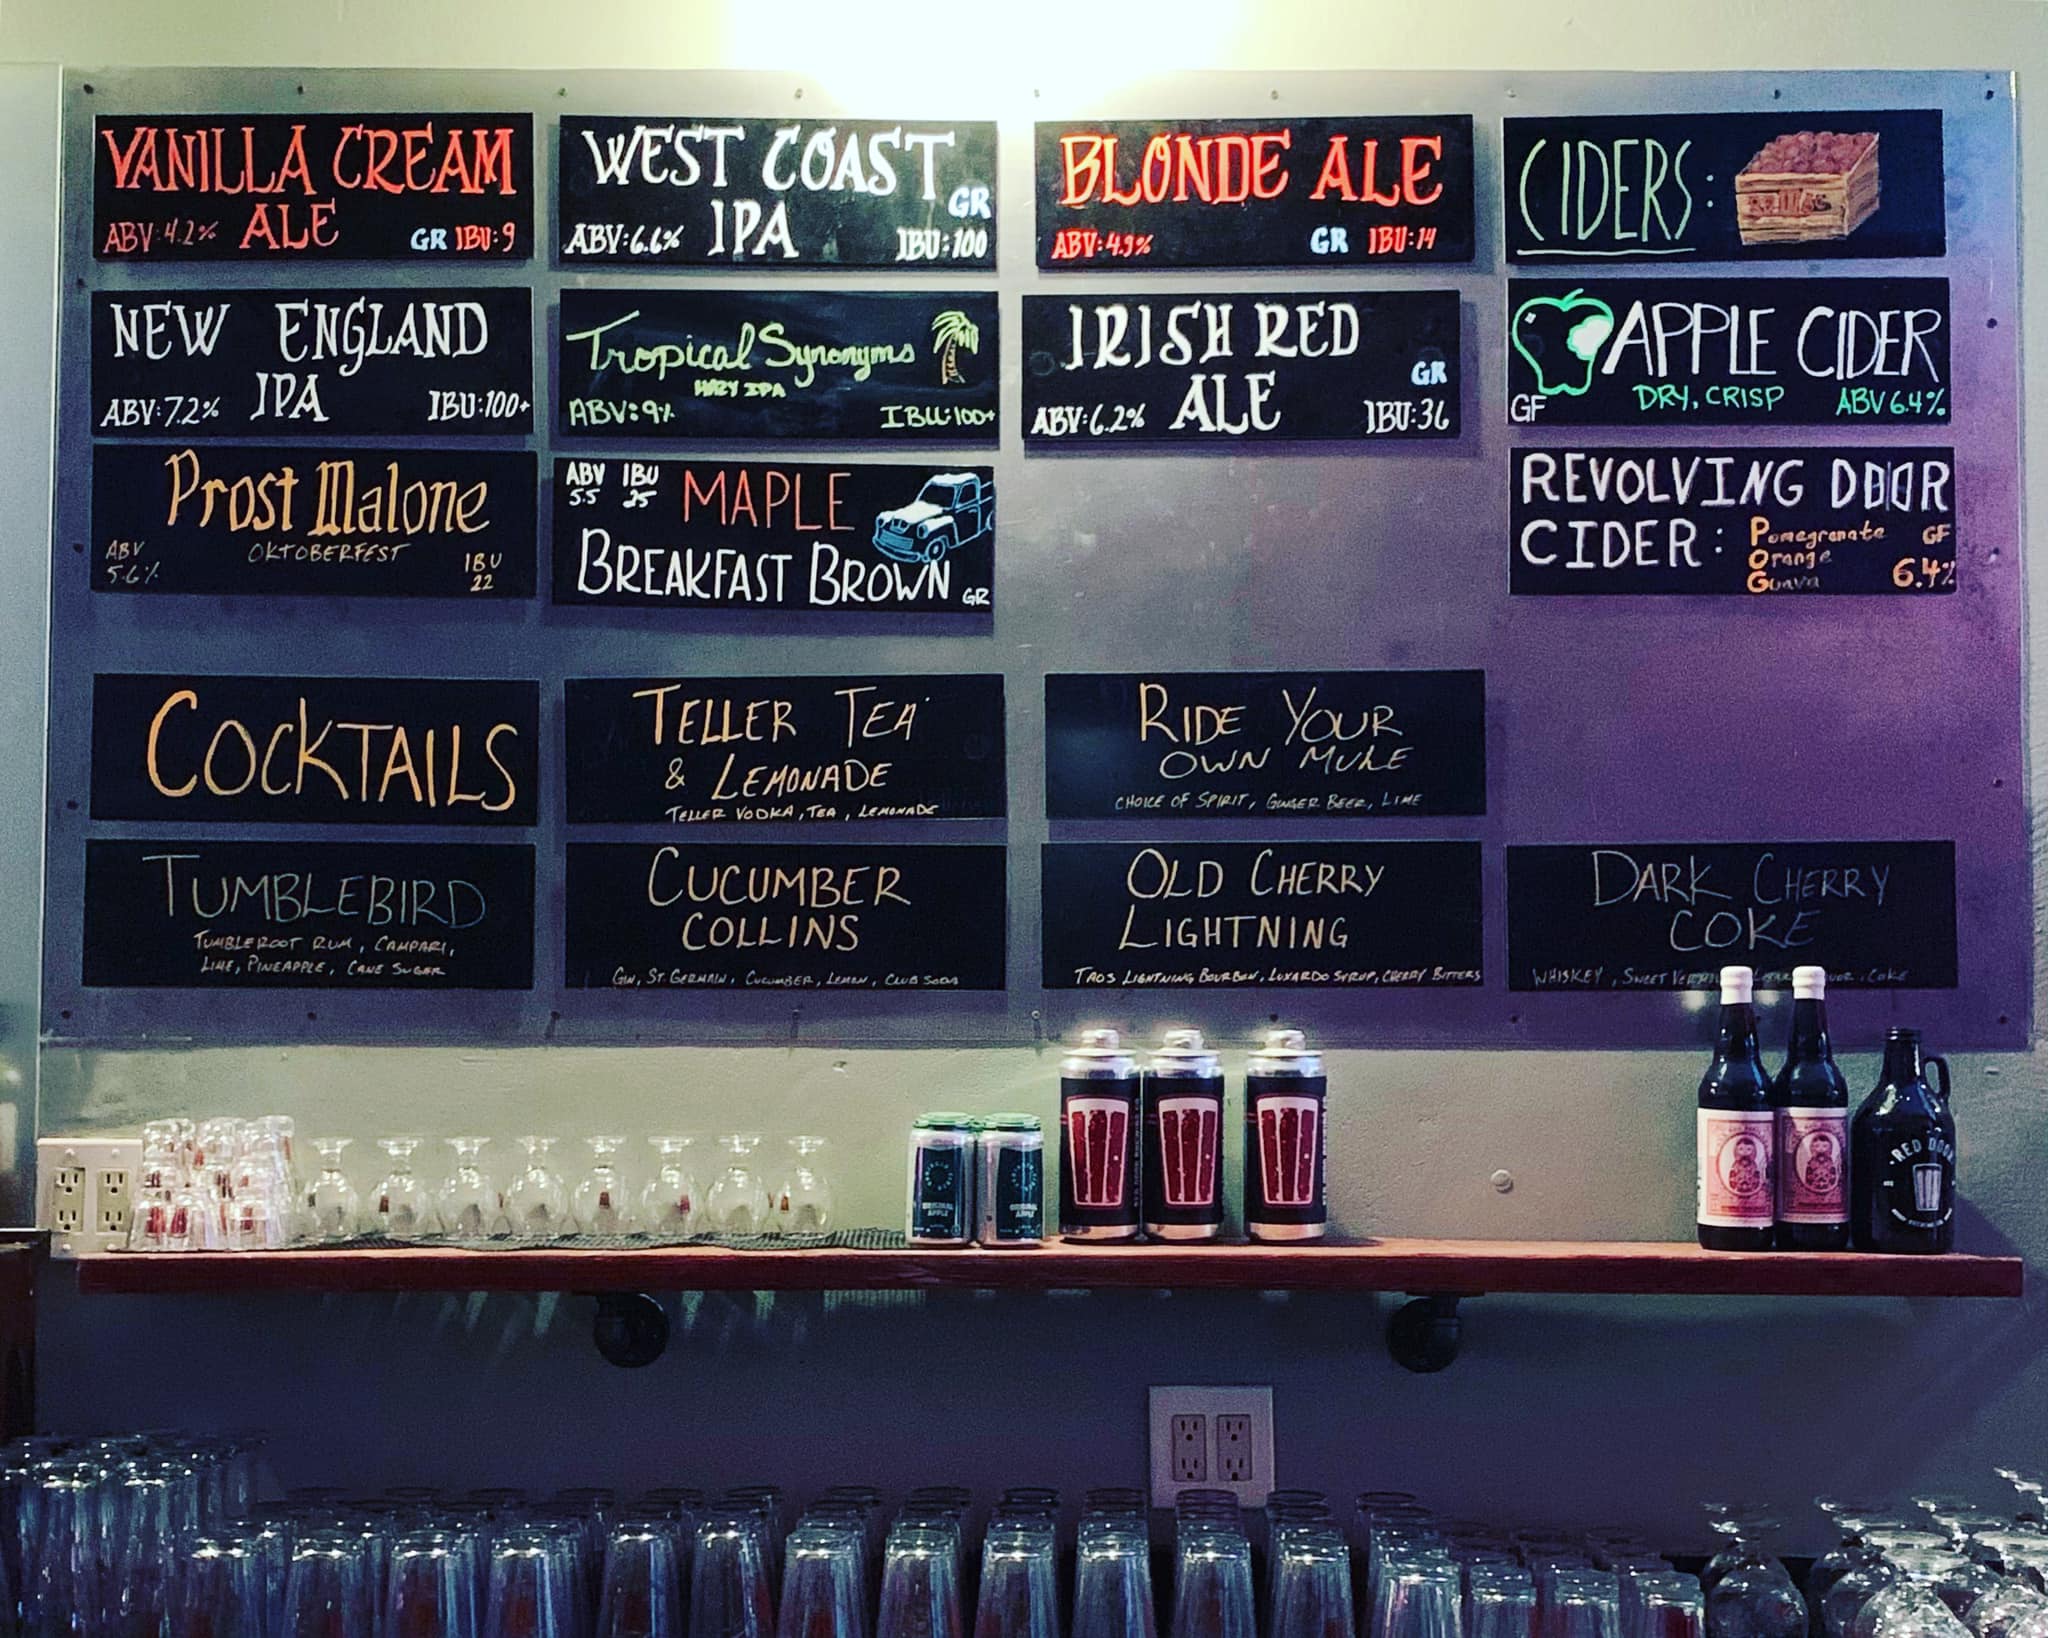 VANILLA CREAM
ALE
ABV: 4.2% GR IBU: 9
WEST COAST
IPA GR
ABV: 6.6% IBU: 100
BLONDE ALE
ABV: 4.9% GR IBU: 14
CIDERS:
NEW ENGLAND
IPA
ABV: 7.2% IBU: 100+
Tropical Synonyms
HAZY IPA
ABV: 9% IBU: 100+
IRISH RED
ALE GR
ABV: 6.2% IBU: 36
APPLE CIDER
GF DRY, CRISP ABV 6.4%
Prost Malone
OKTOBERFEST
ABV 5.6% IBU 22
ABV 5.5 IBU 25 MAPLE
BREAKFAST BROWN GR
REVOLVING DOOR
CIDER: Pomegranate GF
Orange
Guava 6.4%
COCKTAILS
TELLER TEA
& LEMONADE
TELLER VODKA, TEA, LEMONADE
RIDE YOUR
OWN MULE
CHOICE OF SPIRIT, GINGER BEER, LIME
TUMBLEBIRD
TUMBLEROOT RUM, CAMPARI,
LIME, PINEAPPLE, CANE SUGAR
CUCUMBER
COLLINS
GIN, ST. GERMAIN, CUCUMBER, LEMON, CLUB SODA
OLD CHERRY
LIGHTNING
TAOS LIGHTNING BOURBON, LUXARDO SYRUP, CHERRY BITTERS
DARK CHERRY
COKE
WHISKEY, SWEET COKE
ORIGINAL
APPLE
ORIGINAL
APPLE
RED DOOR